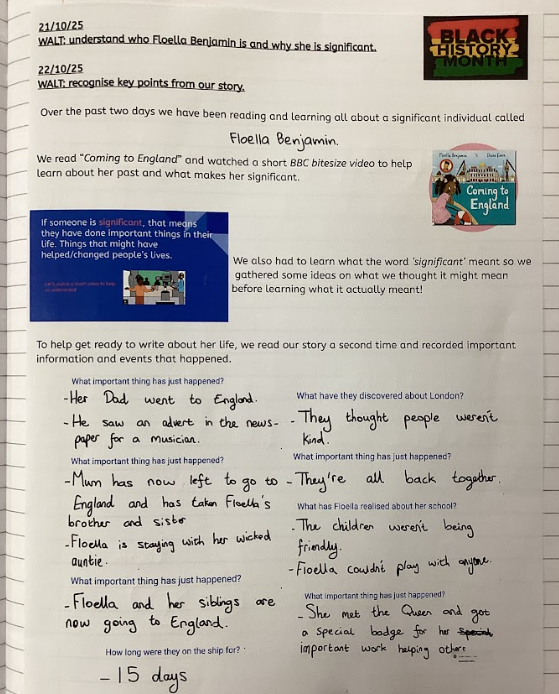 21/10/25
WALT: understand who Floella Benjamin is and why she is significant.
BLACK
HISTORY
MONTH
22/10/25
WALT: recognise key points from our story.
Over the past two days we have been reading and learning all about a significant individual called
Floella Benjamin.
We read "Coming to England" and watched a short BBC bitesize video to help
learn about her past and what makes her significant.
Floella Benjamin
Coming to
England
If someone is significant, that means
they have done important things in their
life. Things that might have
helped/changed people's lives.
We also had to learn what the word 'significant' meant so we
gathered some ideas on what we thought it might mean
before learning what it actually meant!
To help get ready to write about her life, we read our story a second time and recorded important
information and events that happened.
What important thing has just happened?
-Her Dad went to England.
-He saw an advert in the news-
paper for a musician.
What important thing has just happened?
-Mum has now left to go to
England and has taken Floella's
brother and sister
-Floella is staying with her wicked
auntie.
What important thing has just happened?
-Floella and her siblings are
now going to England.
How long were they on the ship for?
-15 days
What have they discovered about London?
-They thought people weren't
kind.
What important thing has just happened?
-They're all back together.
What has Floella realised about her school?
-The children weren't being
friendly.
-Floella couldn't play with anyone.
What important thing has just happened?
-She met the Queen and got
a special badge for her
important work helping others